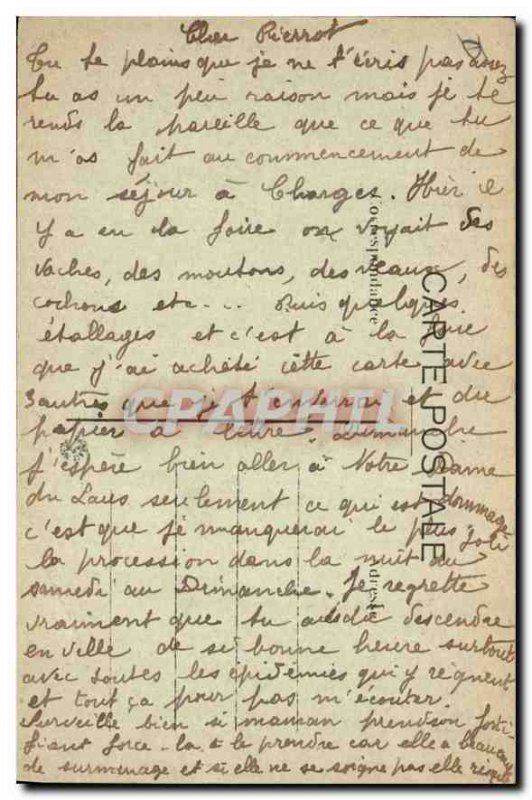 Cher Pierrot
Tu te plains que je ne t'écris pas assez
tu as un peu raison mais je te
rends la pareille que ce que tu
m'as fait au commencement de
mon séjour à Chorges. Hier il
y a eu la foire on voyait des
vaches, des moutons, des veaux, des
cochons etc... Puis quelques
étallages et c'est à la foire
que j'ai achété cette carte avec
3 autres que je t'enverrai et du
papier à lettre. Dimanche
j'espère bien aller à Notre Dame
du Laus seulement ce qui est dommage
c'est que je manquerai le plus joli
la procession dans la nuit du
samedi au Dimanche. Je regrette
vraiment que tu aies dû descendre
en ville de si bonne heure surtout
avec toutes les epidémies qui y règnent
et tout ça pour pas m'écouter.
Surveille bien si maman prend son forti-
fiant force-la à le prendre car elle a beaucoup
de surminage et si elle ne se soigne pas elle risque
CARTE POSTALE
Correspondance
Adresse
CRAPHIL